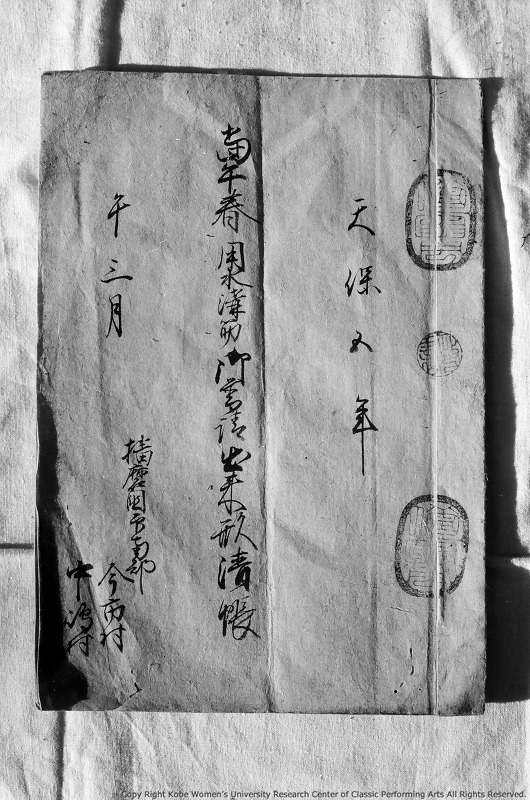 天保五年
當午春用水溝筋御普請出来形清帳
午三月
播磨国印南郡
今市村
中嶋村
Copy Right Kobe Women's University Research Center of Classic Performing Arts All Rights Reserved.